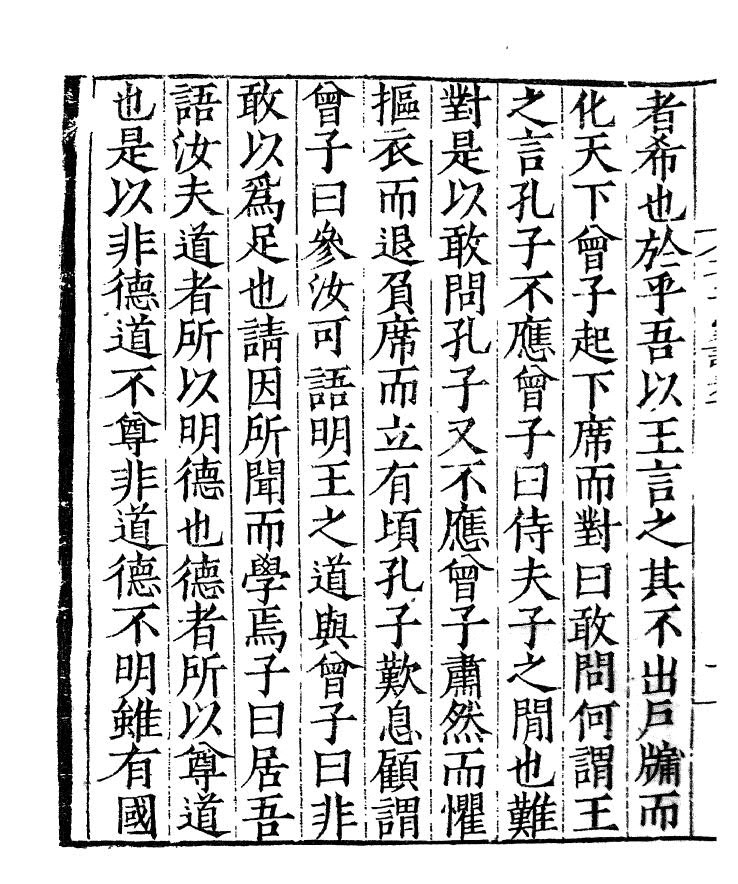 者希也於乎吾以王言之其不出戶牖而
化天下曾子起下席而對曰敢問何謂王
之言孔子不應曾子曰待夫子之閒也難
對是以敢問孔子又不應曾子肅然而懼
摳衣而退負席而立有頃孔子歎息顧謂
曾子曰參汝可語明王之道與曾子曰非
敢以爲足也請因所聞而學焉子曰居吾
語汝夫道者所以明德也德者所以尊道
也是以非德道不尊非道德不明雖有國